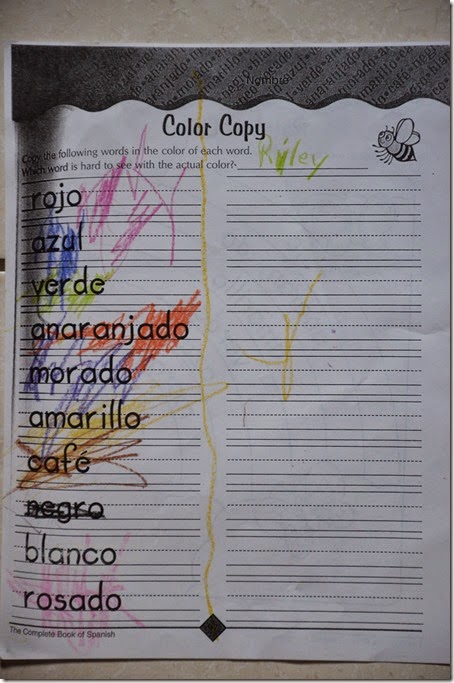 Nombre
Color Copy
Copy the following words in the color of each word.
Which word is hard to see with the actual color?
Riley
rojo
azul
verde
anaranjado
morado
amarillo
café
negro
blanco
rosado
The Complete Book of Spanish